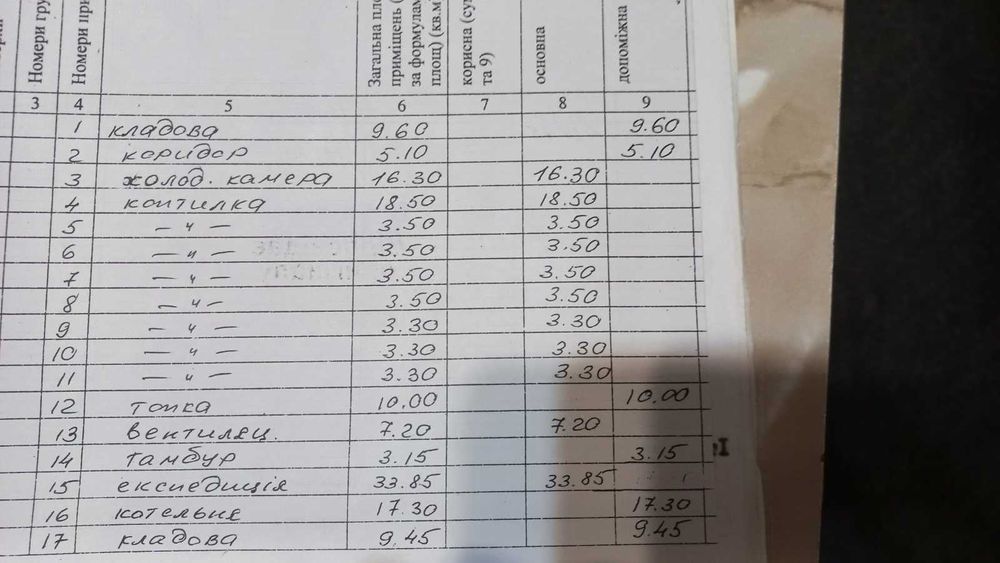 Номери гру
Номери при
Загальна пло
приміщень (
за формулам
площ) (кв.м
корисна (су
та 9)
основна
допоміжна
3 4 5 6 7 8 9
1 кладова 9.60 9.60
2 коридор 5.10 5.10
3 холод. камера 16.30 16.30
4 коптилка 18.50 18.50
5 — " — 3.50 3.50
6 — " — 3.50 3.50
7 — " — 3.50 3.50
8 — " — 3.50 3.50
9 — " — 3.30 3.30
10 — " — 3.30 3.30
11 — " — 3.30 3.30
12 топка 10.00 10.00
13 вентиляц. 7.20 7.20
14 тамбур 3.15 3.15
15 експедиція 33.85 33.85
16 котельня 17.30 17.30
17 кладова 9.45 9.45